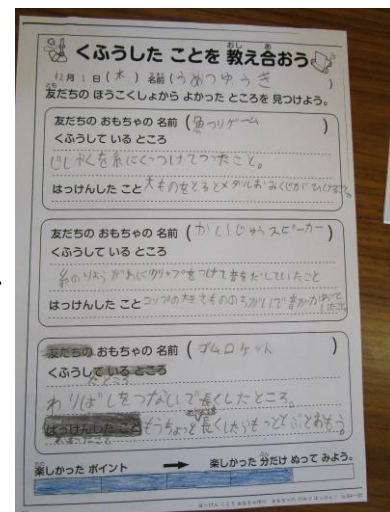 くふうした ことを 教え合おう
12月1日(木) 名前(うめつゆうき)
友だちの ほうこくしょから よかった ところを 見つけよう。
友だちの おもちゃの 名前(魚つりゲーム)
くふうして いる ところ
じしゃくを糸にくっつけてつったこと。
はっけんした こと 大ものをとるとメダルおみくじがひけること。
友だちの おもちゃの 名前(かいじゅうスピーカー)
くふうして いる ところ
クリップをつけて音をだしていたこと
はっけんした こと コップの大きさもののちがいで音が
友だちの おもちゃの 名前(ゴムロケット)
くふうして いる ところ
わりばしをつないで長くしたところ。
はっけんした こと もうちょっと長くしたらもっととぶとおもう。
楽しかった ポイント → 楽しかった 分だけ ぬって みよう。